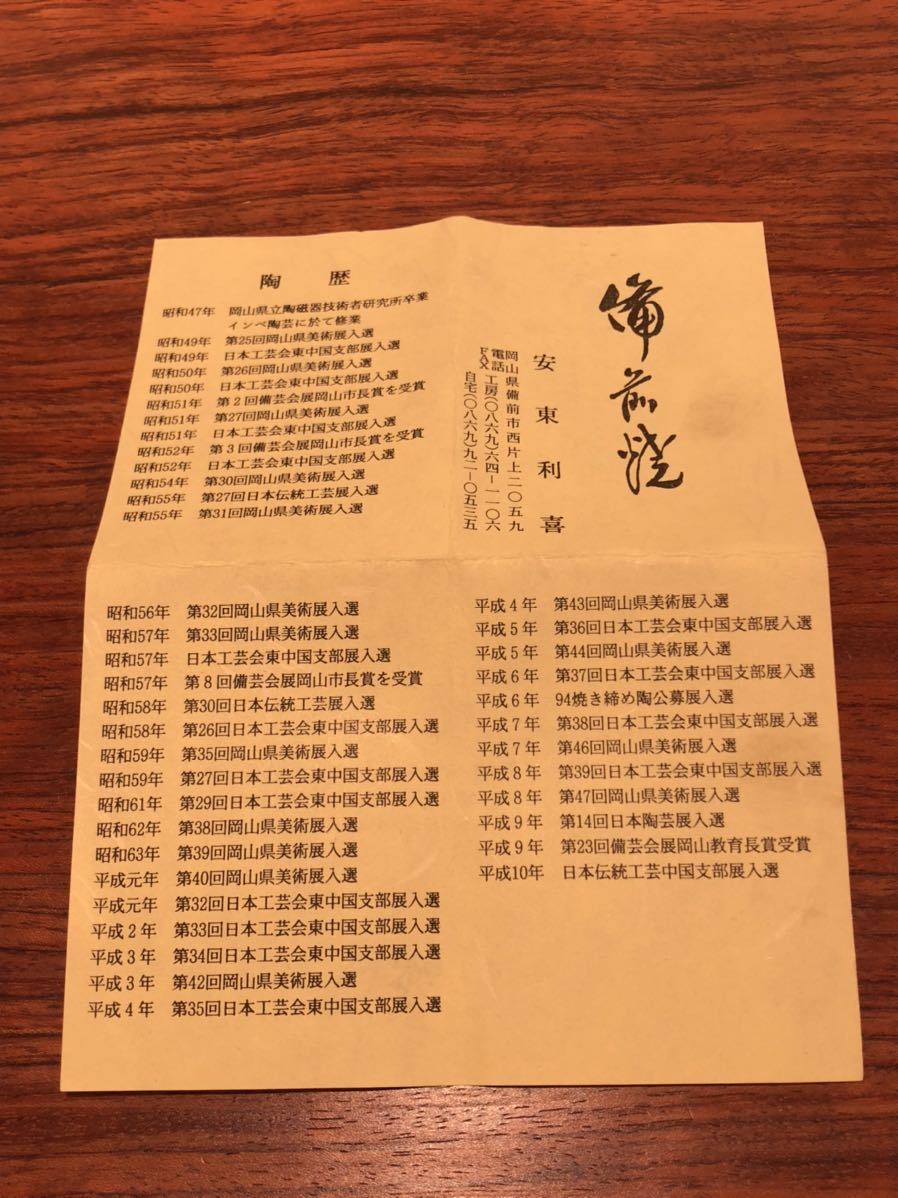 備前焼
安東利喜
岡山県備前市西片上二〇五九
電話 工房(〇八六九)六四-一一〇六
FAX 自宅(〇八六九)九二-〇五三五
陶歴
昭和47年 岡山県立陶磁器技術者研究所卒業
インベ陶芸に於て修業
昭和49年 第25回岡山県美術展入選
昭和49年 日本工芸会東中国支部展入選
昭和50年 第26回岡山県美術展入選
昭和50年 日本工芸会東中国支部展入選
昭和51年 第2回備芸会展岡山市長賞を受賞
昭和51年 第27回岡山県美術展入選
昭和51年 日本工芸会東中国支部展入選
昭和52年 第3回備芸会展岡山市長賞を受賞
昭和52年 日本工芸会東中国支部展入選
昭和54年 第30回岡山県美術展入選
昭和55年 第27回日本伝統工芸展入選
昭和55年 第31回岡山県美術展入選
昭和56年 第32回岡山県美術展入選
昭和57年 第33回岡山県美術展入選
昭和57年 日本工芸会東中国支部展入選
昭和57年 第8回備芸会展岡山市長賞を受賞
昭和58年 第30回日本伝統工芸展入選
昭和58年 第26回日本工芸会東中国支部展入選
昭和59年 第35回岡山県美術展入選
昭和59年 第27回日本工芸会東中国支部展入選
昭和61年 第29回日本工芸会東中国支部展入選
昭和62年 第38回岡山県美術展入選
昭和63年 第39回岡山県美術展入選
平成元年 第40回岡山県美術展入選
平成元年 第32回日本工芸会東中国支部展入選
平成2年 第33回日本工芸会東中国支部展入選
平成3年 第34回日本工芸会東中国支部展入選
平成3年 第42回岡山県美術展入選
平成4年 第35回日本工芸会東中国支部展入選
平成4年 第43回岡山県美術展入選
平成5年 第36回日本工芸会東中国支部展入選
平成5年 第44回岡山県美術展入選
平成6年 第37回日本工芸会東中国支部展入選
平成6年 94焼き締め陶公募展入選
平成7年 第38回日本工芸会東中国支部展入選
平成7年 第46回岡山県美術展入選
平成8年 第39回日本工芸会東中国支部展入選
平成8年 第47回岡山県美術展入選
平成9年 第14回日本陶芸展入選
平成9年 第23回備芸会展岡山教育長賞受賞
平成10年 日本伝統工芸中国支部展入選